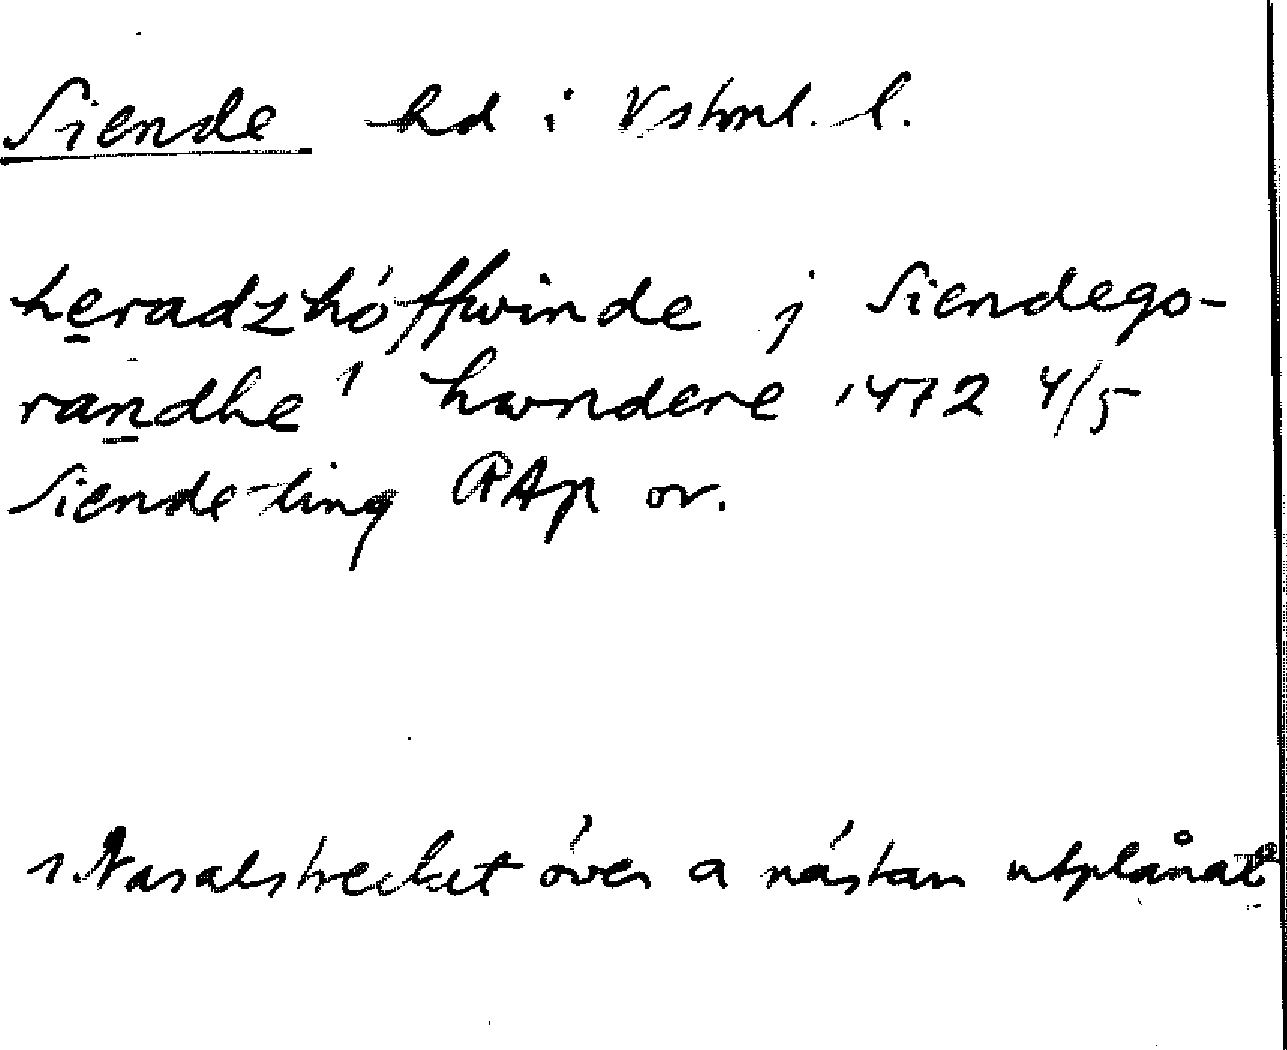 Siende hd i Vstml. l.
heradzhöffwinde j Siendego-
randhe¹ hwndere 1472 4/5
Siende ting RAp or.
1 Nasalstrecket över a nästan utplånat